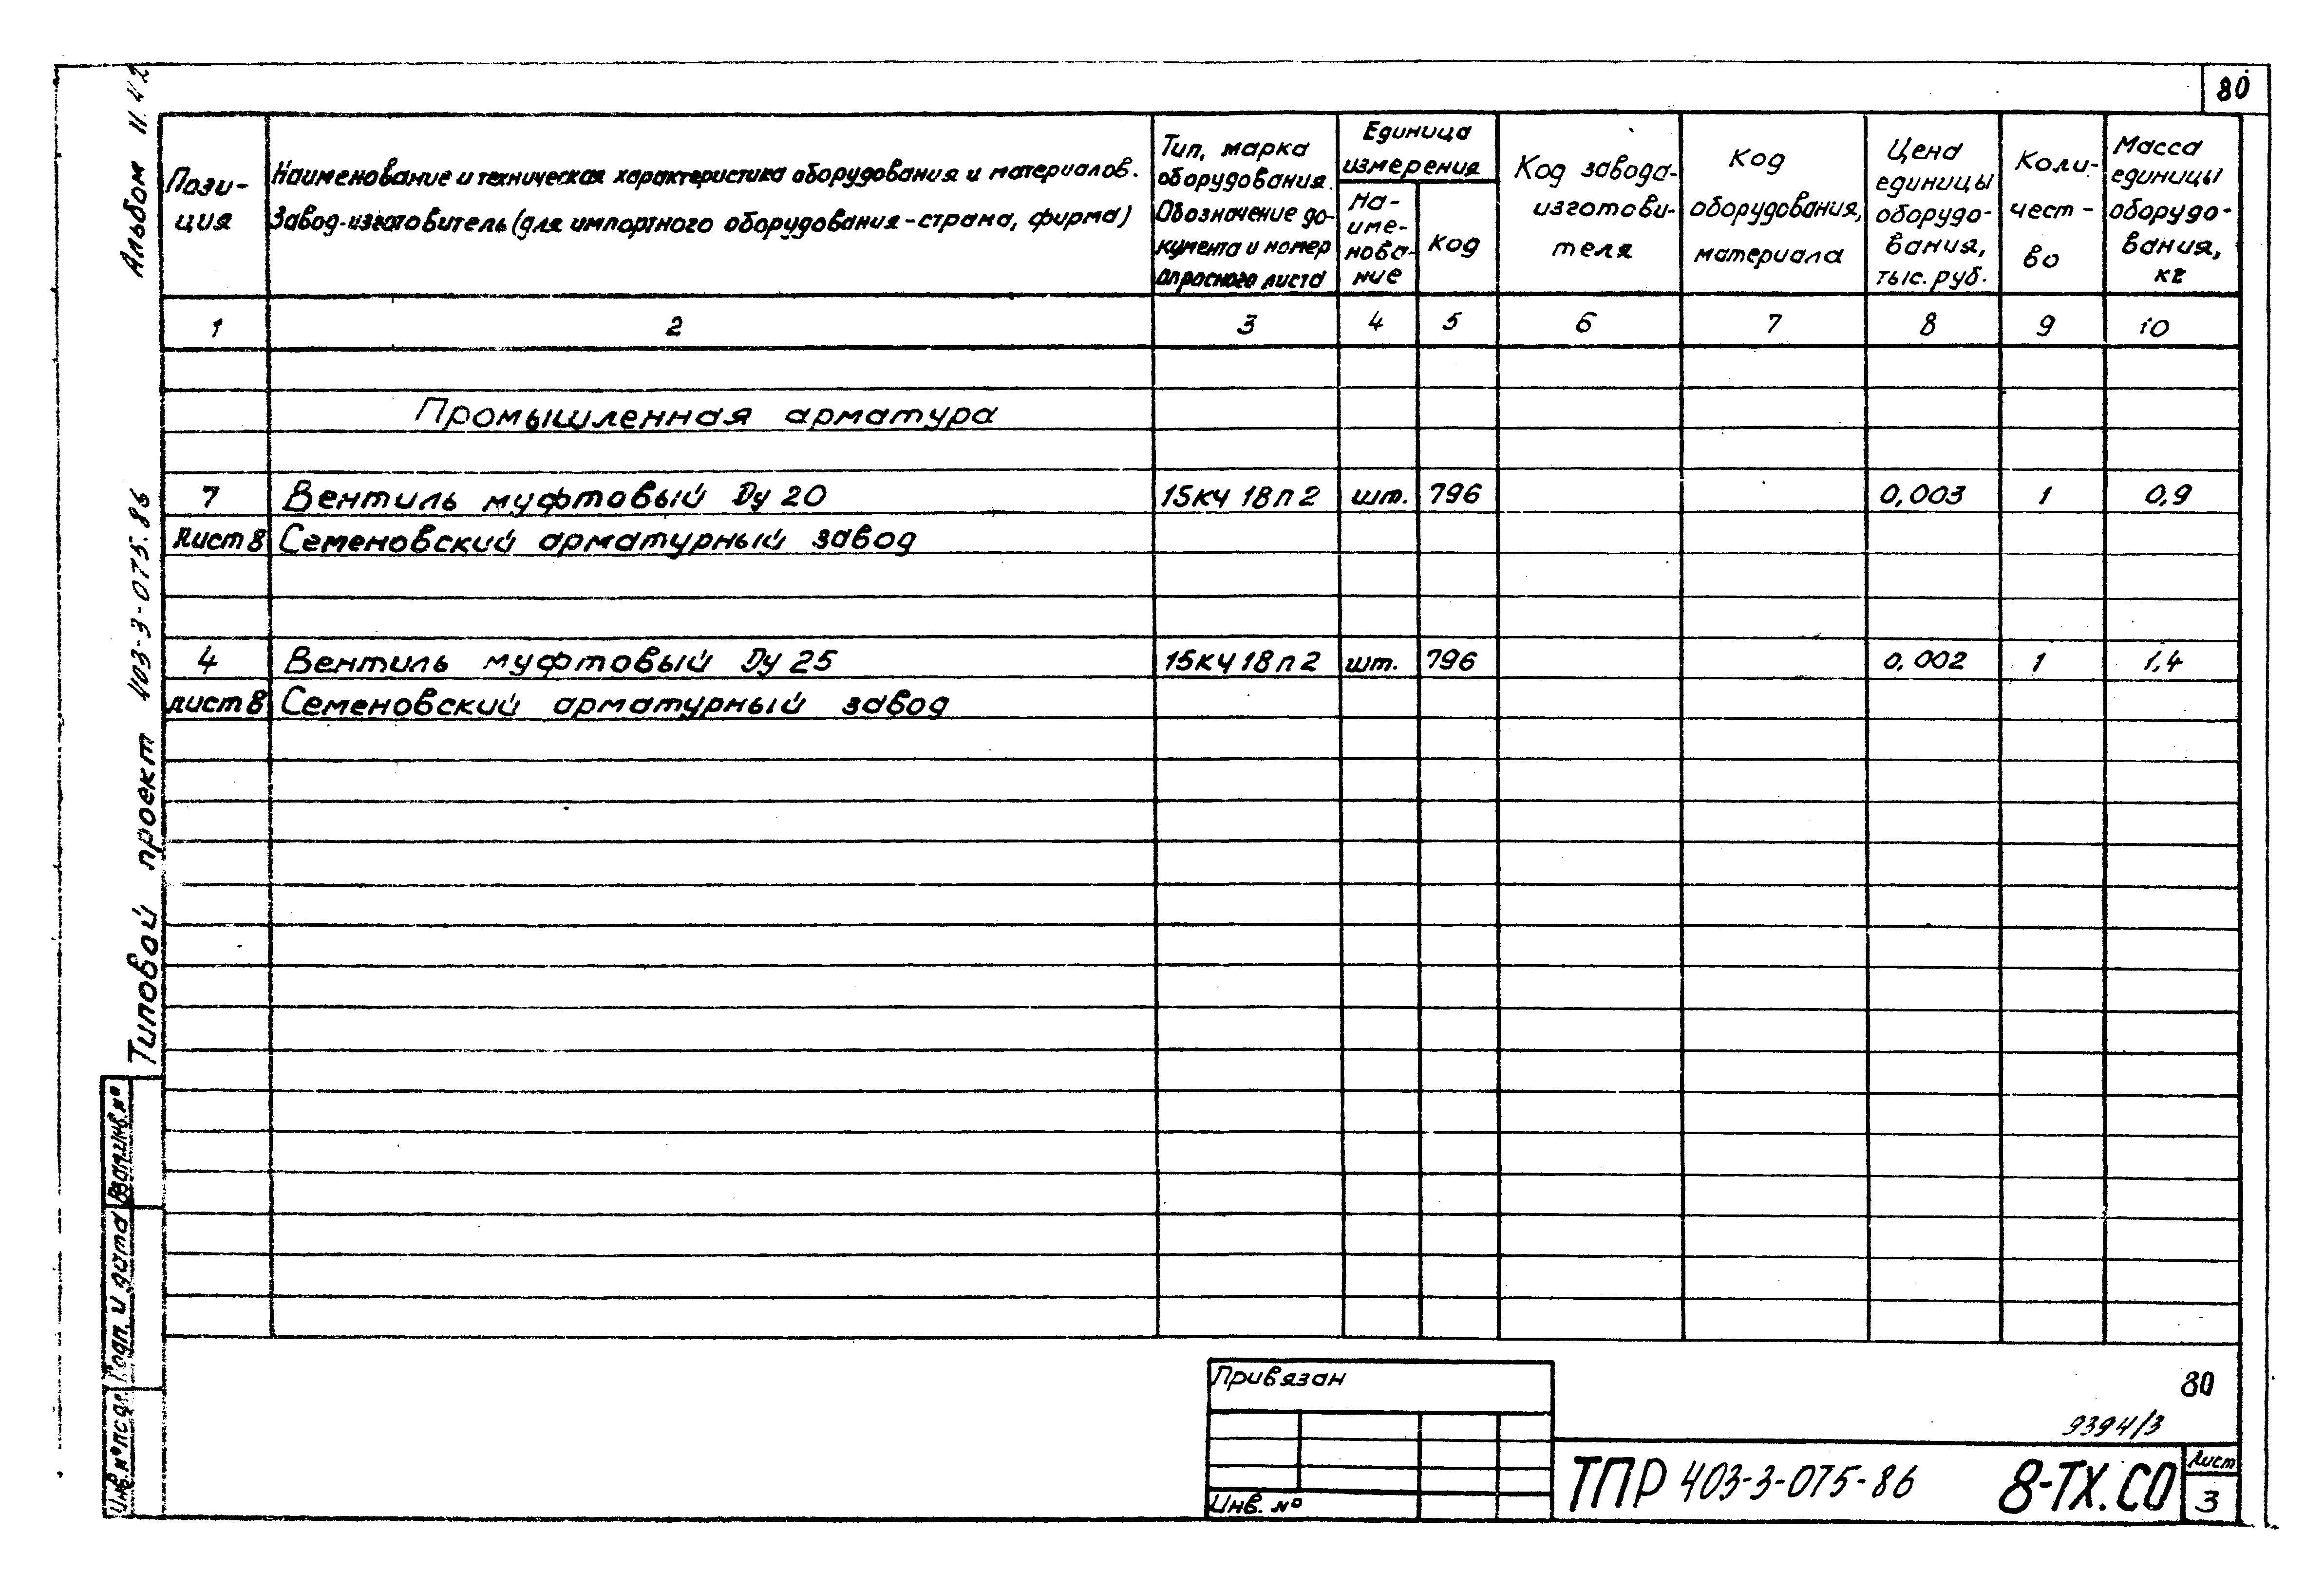 80
Альбом II.4.2
Типовой проект 403-3-075.86
Пози-
ция
Наименование и техническая характеристика оборудования и материалов.
Завод-изготовитель (для импортного оборудования - страна, фирма)
Тип, марка
оборудования.
Обозначение до-
кумента и номер
опросного листа
Единица
измерения
На-
име-
нова-
ние
Код
Код завода-
изготови-
теля
Код
оборудования,
материала
Цена
единицы
оборудо-
вания,
тыс. руб.
Коли-
чест-
во
Масса
единицы
оборудо-
вания,
кг
1 2 3 4 5 6 7 8 9 10
Промышленная арматура
7 Вентиль муфтовый Ду 20 15кч 18п2 шт. 796 0,003 1 0,9
лист 8 Семеновский арматурный завод
4 Вентиль муфтовый Ду 25 15кч 18п2 шт. 796 0,002 1 1,4
лист 8 Семеновский арматурный завод
Взам.инв.№
Подп. и дата
Инв.№подл.
Привязан
Инв. №
80
9394/3
ТПР 403-3-075-86 8-ТХ.СО
Лист
3